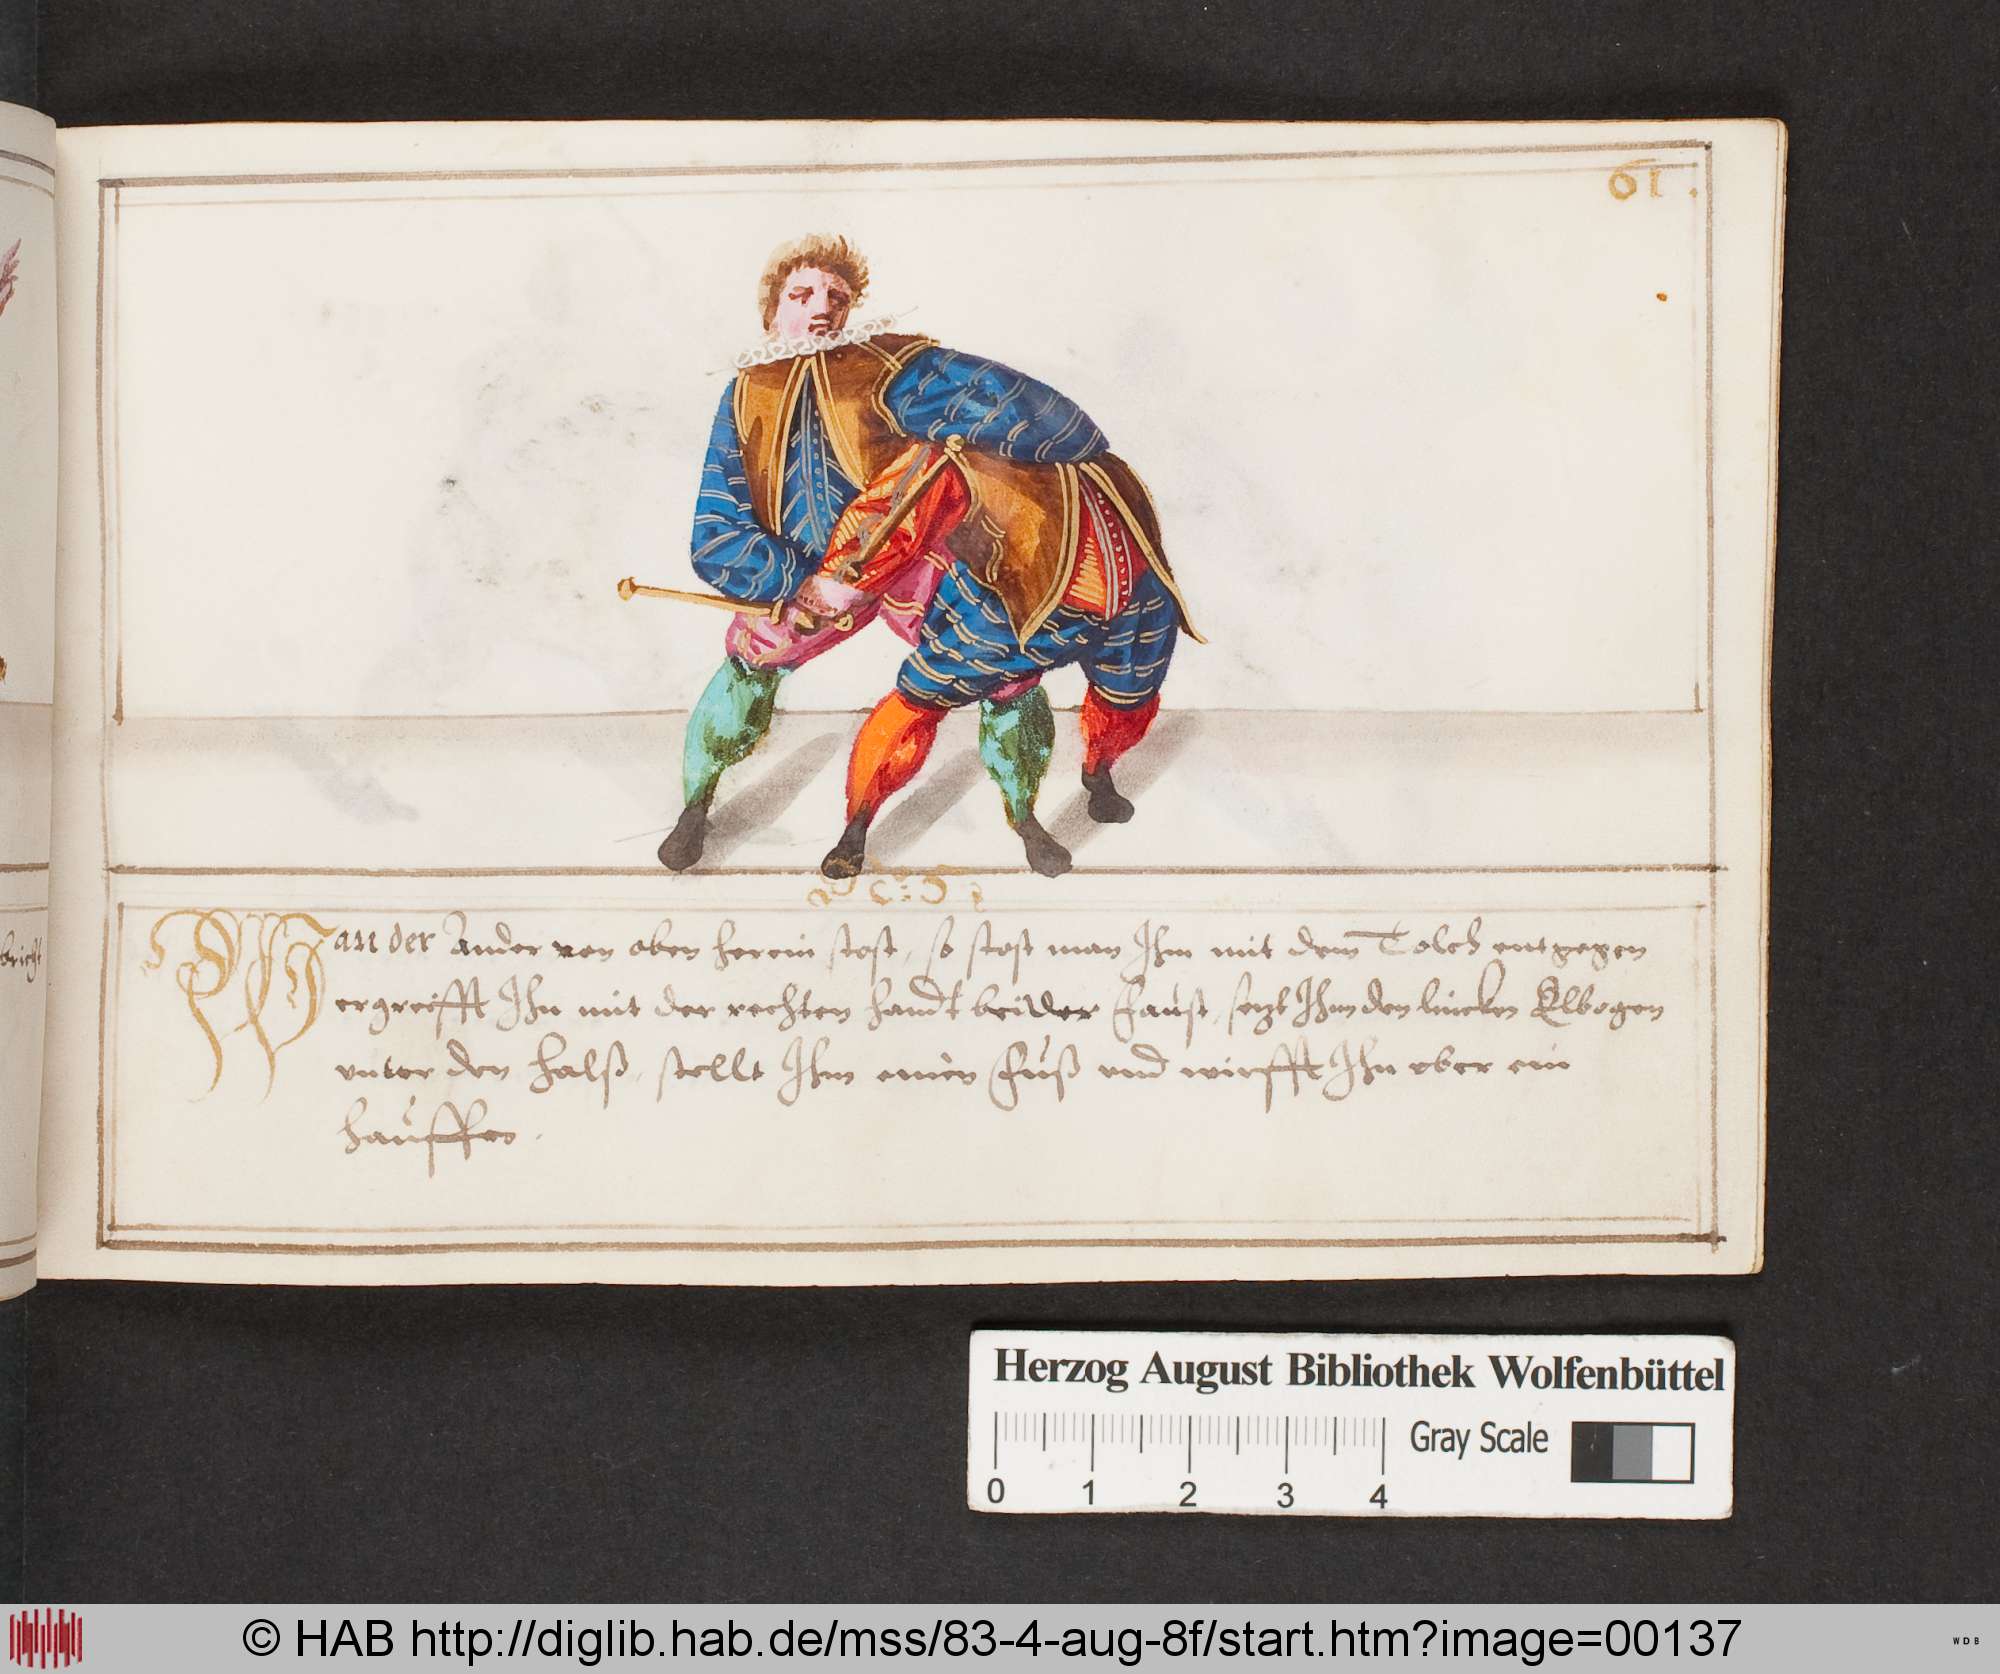 61.
Wan der Ander von oben herein stost, so stost man Ihm mit dem Tolch entgegen
ergreifft Ihn mit der rechten handt bei der Faust, setzt Ihm den lincken Elbogen
unter den Halß, stellt Ihm einen Fuß und wirfft Ihn uber ein
hauffen.
bricht
Herzog August Bibliothek Wolfenbüttel
Gray Scale
0 1 2 3 4
© HAB http://diglib.hab.de/mss/83-4-aug-8f/start.htm?image=00137
WDB